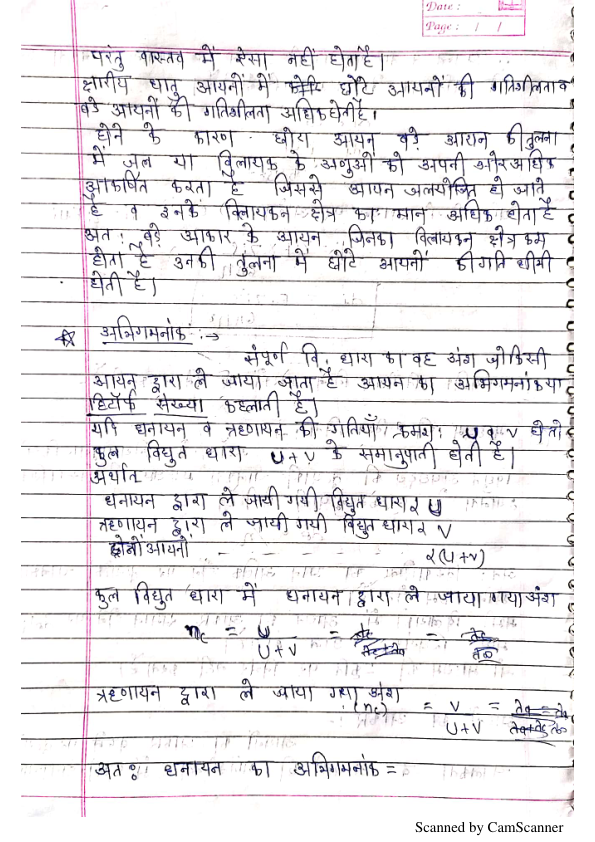 Date :
Page : / /
परंतु वास्तव में ऐसा नहीं होता है।
क्षारीय धातु आयनों में छोटे आयनों की गतिशीलता व
बडे आयनों की गतिशीलता अधिक होती है।
होने के कारण छोटा आयन बडे आयन की तुलना
में जल या विलायक के अणुओं को अपनी ओर अधिक
आकर्षित करता है जिससे आयन जलयोजित हो जाते
है व इनके विलायकन क्षेत्र का मान अधिक होता है
अत : बडे आकार के आयन जिनका विलायकन क्षेत्र कम
होता है उनकी तुलना में छोटे आयनों की गति धीमी
होती है।
अभिगमनांक :→
संपूर्ण वि. धारा का वह अंश जो किसी
आयन द्वारा ले जाया जाता है आयन का अभिगमनांक या
हिटॉर्फ संख्या कहलाती है।
यदि धनायन व ऋणायन की गतियाँ क्रमश: U व V हो तो
कुल विद्युत धारा U + V के समानुपाती होती है।
अर्थात
धनायन द्वारा ले जायी गयी विद्युत धारा α U
ऋणायन द्वारा ले जायी गयी विद्युत धारा α V
दोनों आयनो - - - - - α (U+V)
कुल विद्युत धारा में धनायन द्वारा ले जाया गया अंश
nc = U / U+V = =
ऋणायन द्वारा ले जाया गया अंश
(nc) = V / U+V =
अत: धनायन का अभिगमनांक =
Scanned by CamScanner